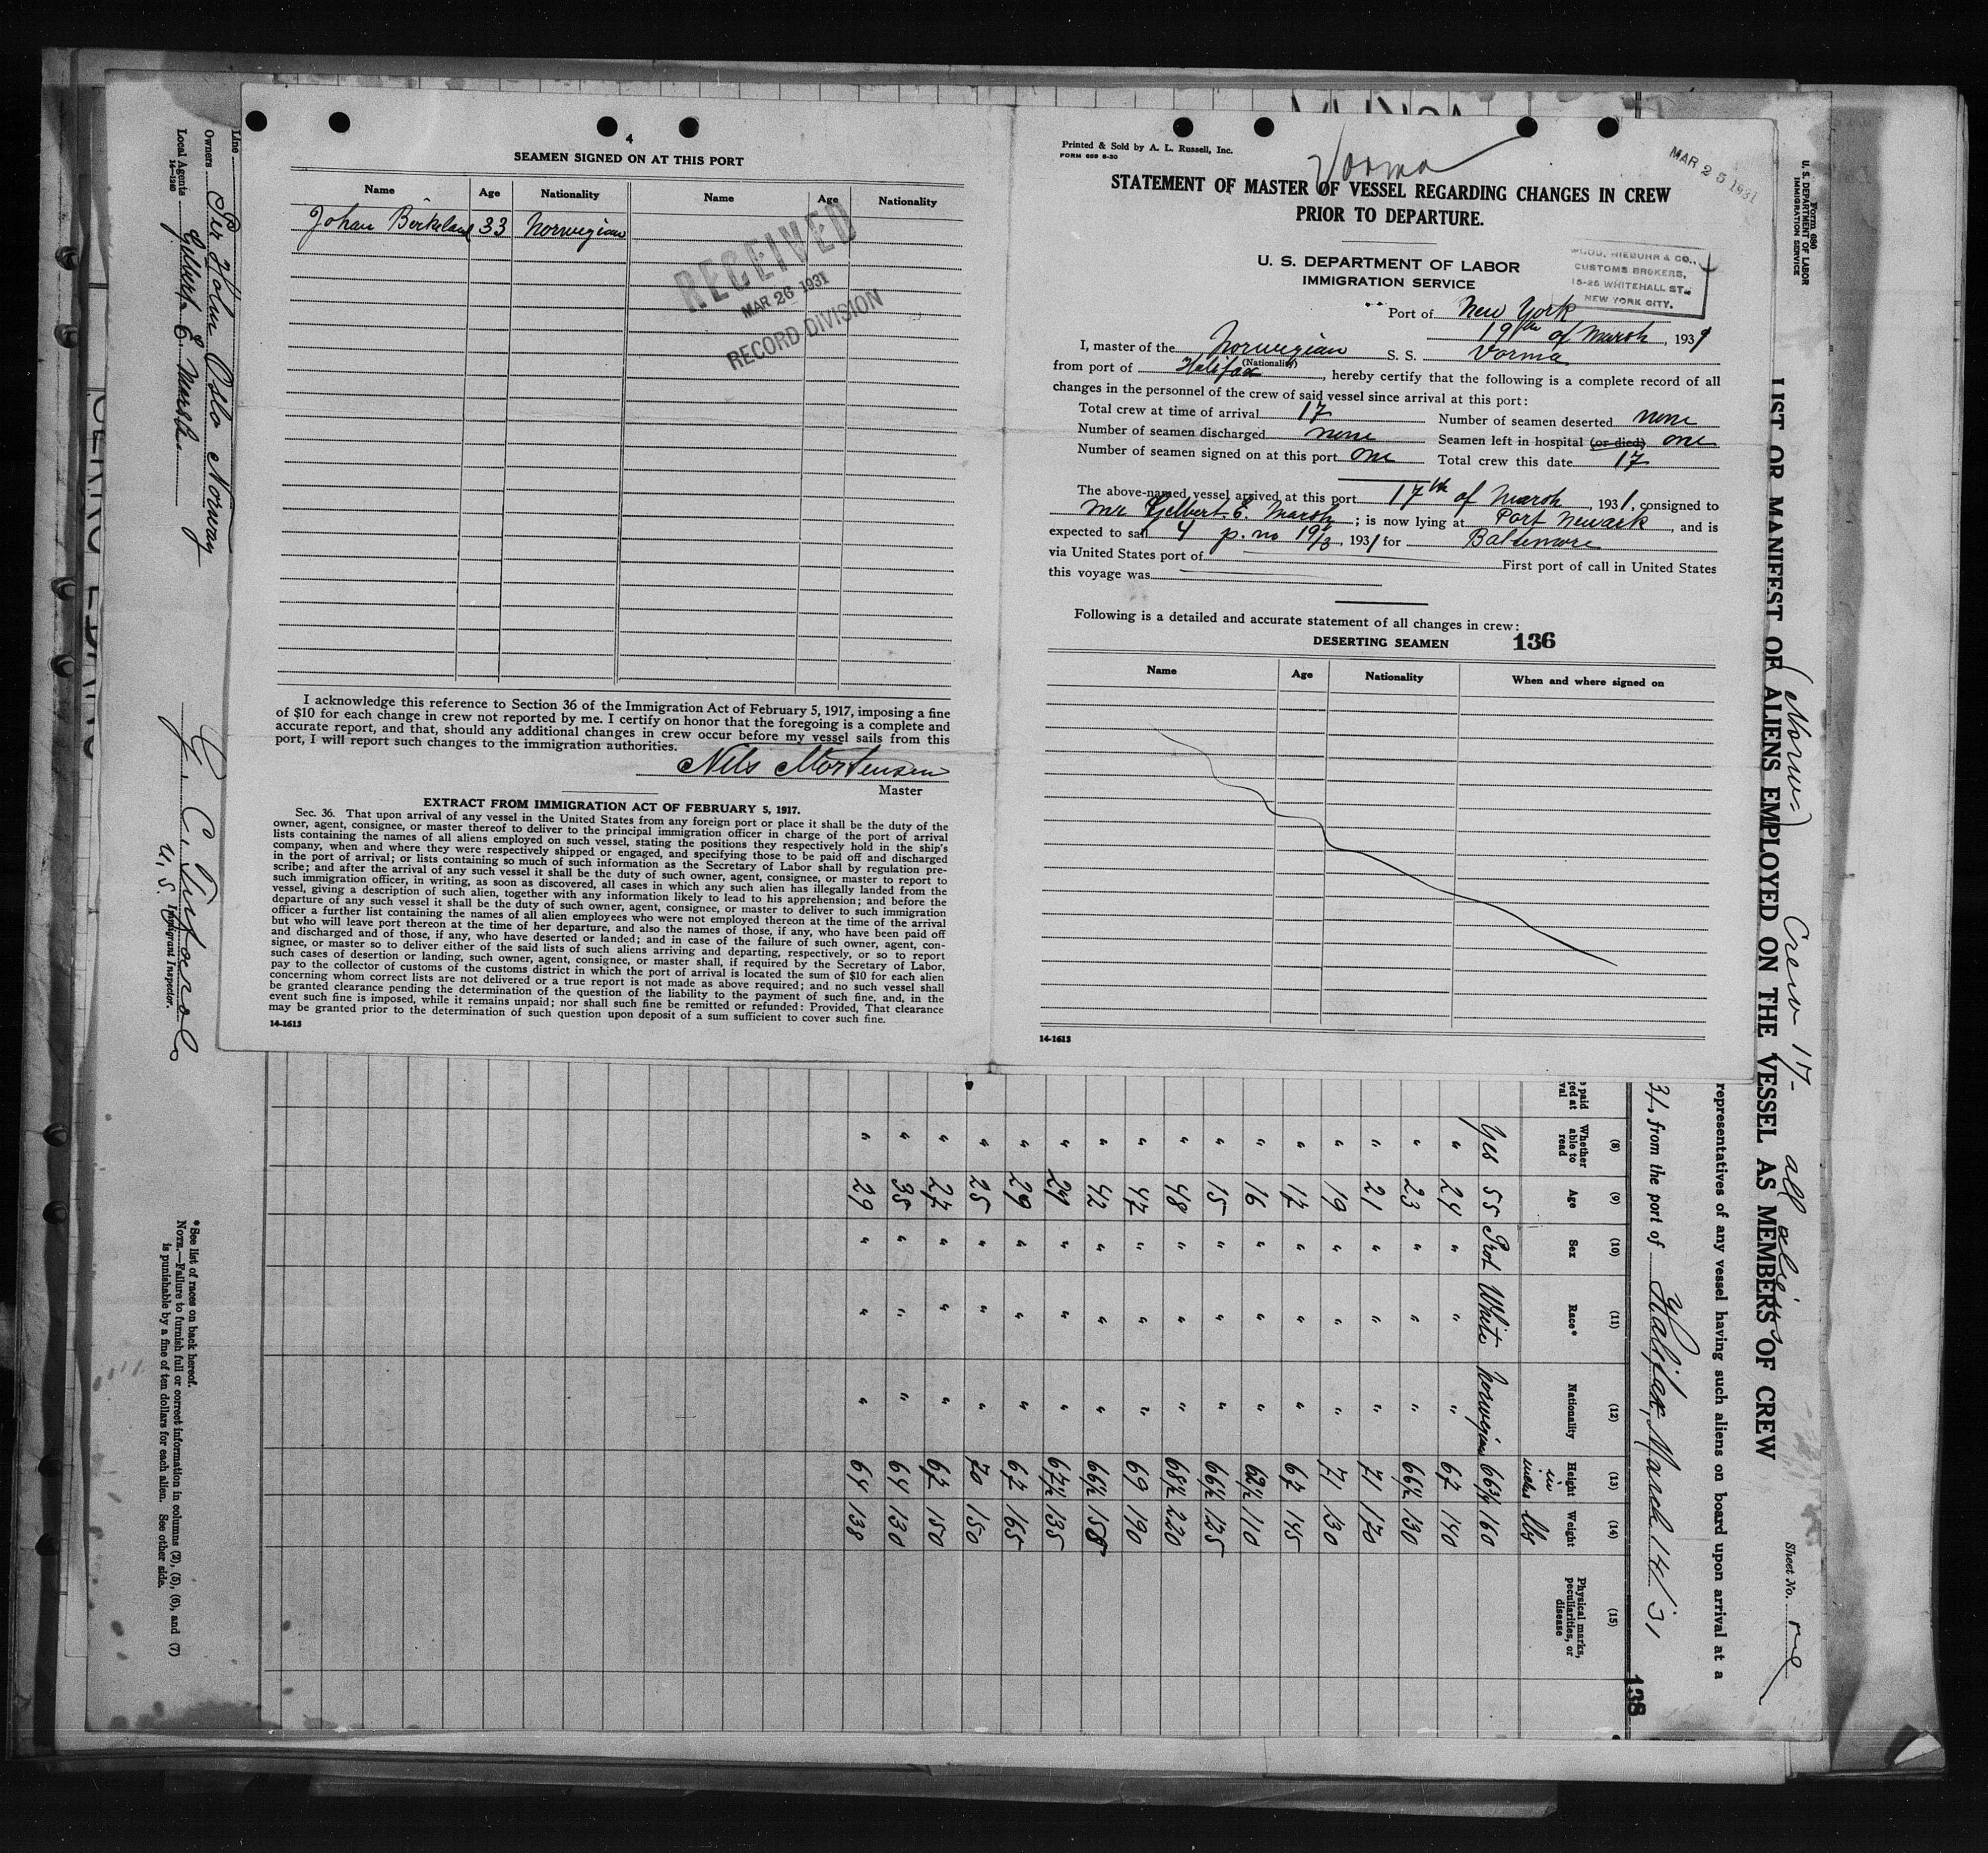 4
SEAMEN SIGNED ON AT THIS PORT
Name Age Nationality Name Age Nationality
Johan Birkeland 33 Norwegian
RECEIVED
MAR 26 1931
RECORD DIVISION
I acknowledge this reference to Section 36 of the Immigration Act of February 5, 1917, imposing a fine
of $10 for each change in crew not reported by me. I certify on honor that the foregoing is a complete and
accurate report, and that, should any additional changes in crew occur before my vessel sails from this
port, I will report such changes to the immigration authorities.
Nils Mortensen
Master
EXTRACT FROM IMMIGRATION ACT OF FEBRUARY 5, 1917.
Sec. 36. That upon arrival of any vessel in the United States from any foreign port or place it shall be the duty of the
owner, agent, consignee, or master thereof to deliver to the principal immigration officer in charge of the port of arrival
lists containing the names of all aliens employed on such vessel, stating the positions they respectively hold in the ship's
company, when and where they were respectively shipped or engaged, and specifying those to be paid off and discharged
in the port of arrival; or lists containing so much of such information as the Secretary of Labor shall by regulation pre-
scribe; and after the arrival of any such vessel it shall be the duty of such owner, agent, consignee, or master to report to
such immigration officer, in writing, as soon as discovered, all cases in which any such alien has illegally landed from the
vessel, giving a description of such alien, together with any information likely to lead to his apprehension; and before the
departure of any such vessel it shall be the duty of such owner, agent, consignee, or master to deliver to such immigration
officer a further list containing the names of all alien employees who were not employed thereon at the time of the arrival
but who will leave port thereon at the time of her departure, and also the names of those, if any, who have been paid off
and discharged and of those, if any, who have deserted or landed; and in case of the failure of such owner, agent, con-
signee, or master so to deliver either of the said lists of such aliens arriving and departing, respectively, or so to report
such cases of desertion or landing, such owner, agent, consignee, or master shall, if required by the Secretary of Labor,
pay to the collector of customs of the customs district in which the port of arrival is located the sum of $10 for each alien
concerning whom correct lists are not delivered or a true report is not made as above required; and no such vessel shall
be granted clearance pending the determination of the question of the liability to the payment of such fine, and, in the
event such fine is imposed, while it remains unpaid; nor shall such fine be remitted or refunded: Provided, That clearance
may be granted prior to the determination of such question upon deposit of a sum sufficient to cover such fine.
14-1613
Printed & Sold by A. L. Russell, Inc.
FORM 689 6-30
Vorma
MAR 25 1931
STATEMENT OF MASTER OF VESSEL REGARDING CHANGES IN CREW
PRIOR TO DEPARTURE.
U. S. DEPARTMENT OF LABOR
IMMIGRATION SERVICE
NIEBUHR & CO.,
CUSTOMS BROKERS,
15-25 WHITEHALL ST.,
NEW YORK CITY.
Port of New York
19th of March, 1931
I, master of the Norwegian S. S. Vorma
(Nationality)
from port of Halifax, hereby certify that the following is a complete record of all
changes in the personnel of the crew of said vessel since arrival at this port:
Total crew at time of arrival 17 Number of seamen deserted none
Number of seamen discharged none Seamen left in hospital (or died) one
Number of seamen signed on at this port one Total crew this date 17
The above-named vessel arrived at this port 17th of March, 1931, consigned to
Mr Gilbert E. Marsh; is now lying at Port Newark, and is
expected to sail 4 p. m 19/3, 1931 for Baltimore
via United States port of First port of call in United States
this voyage was
Following is a detailed and accurate statement of all changes in crew:
DESERTING SEAMEN 136
Name Age Nationality When and where signed on
14-1613
Form 680
U. S. DEPARTMENT OF LABOR
IMMIGRATION SERVICE
(Norw.) Crew 17- all aliens
Sheet No. one
LIST OR MANIFEST OF ALIENS EMPLOYED ON THE VESSEL AS MEMBERS OF CREW
representatives of any vessel having such aliens on board upon arrival at a
31, from the port of Halifax, March 14/31
136
(8) (9) (10) (11) (12) (13) (14) (15)
Whether able to read Age Sex Race* Nationality Height Weight Physical marks, peculiarities, or disease
in lbs
Yes 55 White Norwegian 66¾ 160
" 24 " " " 67 140
" 23 " " " 66½ 130
" 21 " " " 71 170
" 19 " " " 71 130
" 17 " " " 67 145
" 16 " " " 62½ 110
" 15 " " " 66½ 125
" 48 " " " 68½ 220
" 47 " " " 69 190
" 42 " " " 66½ 158
" 24 " " " 67½ 135
" 29 " " " 67 165
" 25 " " " 70 150
" 27 " " " 67 150
" 35 " " " 64 130
" 29 " " " 64 138
Line
Owners Per Holm Oslo Norway
Local Agents Gilbert E. Marsh
14-1240
U. S. Immigrant Inspector.
*See list of races on back hereof.
NOTE.—Failure to furnish full or correct information in columns (2), (5), (6), and (7)
is punishable by a fine of ten dollars for each alien. See other side.